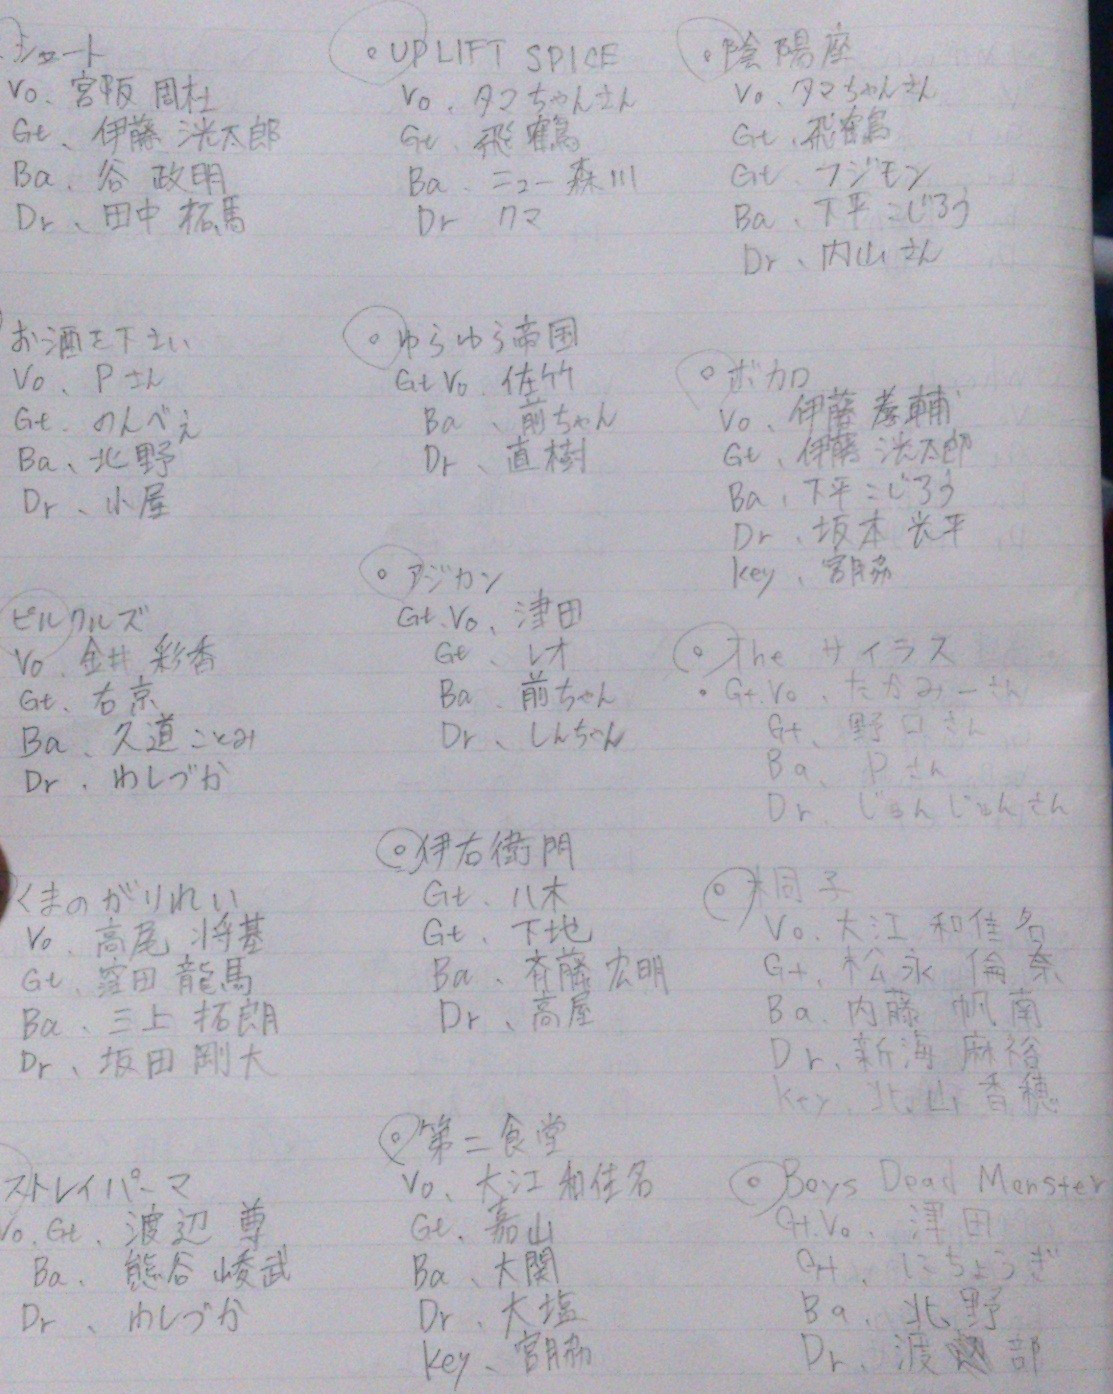 ショート
Vo. 宮阪 周杜
Gt、伊藤 洸太郎
Ba. 谷 政明
Dr、田中 拓馬
お酒を下さい
Vo. Pさん
Gt. のんべえ
Ba、北野
Dr、小屋
ピルクルズ
Vo. 金井 彩香
Gt. 右京
Ba、久道 ことみ
Dr. わしづか
くまのがりれい
Vo、高尾 将基
Gt、窪田 龍馬
Ba. 三上 拓朗
Dr、坂田 剛大
ストレイパーマ
Vo. Gt、渡辺 尊
Ba. 熊谷 崚武
Dr、わしづか
UPLIFT SPICE
Vo. タマちゃんさん
Gt. 飛鶴
Ba. ニュー森川
Dr クマ
ゆらゆら帝国
Gt Vo. 佐竹
Ba、前ちゃん
Dr、直樹
アジカン
Gt.Vo、津田
Gt. レオ
Ba、前ちゃん
Dr、しんちゃん
伊右衛門
Gt、八木
Gt、下地
Ba、斉藤 宏明
Dr、高屋
第二食堂
Vo、大江 和佳名
Gt. 嘉山
Ba、大関
Dr、大塩
Key、宮脇
陰陽座
Vo. タマちゃんさん
Gt. 飛鶴
Gt. フジモン
Ba、下平 こじろう
Dr、内山さん
ボカロ
Vo、伊藤 孝輔
Gt、伊藤 洸太郎
Ba、下平 こじろう
Dr、坂本 光平
Key、宮脇
The サイラス
Gt.Vo、たかみーさん
Gt、野口さん
Ba、Pさん
Dr、じゅんじゅんさん
桐子
Vo. 大江 和佳名
Gt、松永 倫奈
Ba. 内藤 帆南
Dr. 新海 麻裕
Key. 北山 香穂
Boys Dead Monster
Gt.Vo. 津田
Gt、にちょうぎ
Ba. 北野
Dr. 渡部